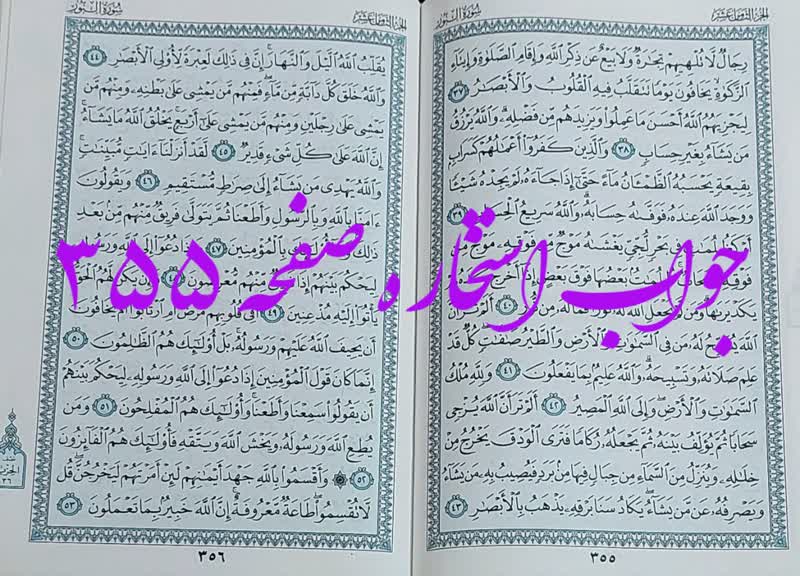 الجزء الثامن عشر
سورة النور
رِجَالٌ لَّا تُلْهِيهِمْ تِجَٰرَةٌ وَلَا بَيْعٌ عَن ذِكْرِ ٱللَّهِ وَإِقَامِ ٱلصَّلَوٰةِ وَإِيتَآءِ
ٱلزَّكَوٰةِ يَخَافُونَ يَوْمًا تَتَقَلَّبُ فِيهِ ٱلْقُلُوبُ وَٱلْأَبْصَٰرُ ٣٧
لِيَجْزِيَهُمُ ٱللَّهُ أَحْسَنَ مَا عَمِلُوا۟ وَيَزِيدَهُم مِّن فَضْلِهِۦ وَٱللَّهُ يَرْزُقُ
مَن يَشَآءُ بِغَيْرِ حِسَابٍ ٣٨ وَٱلَّذِينَ كَفَرُوٓا۟ أَعْمَٰلُهُمْ كَسَرَابٍۭ
بِقِيعَةٍ يَحْسَبُهُ ٱلظَّمْـَٔانُ مَآءً حَتَّىٰٓ إِذَا جَآءَهُۥ لَمْ يَجِدْهُ شَيْـًٔا
وَوَجَدَ ٱللَّهَ عِندَهُۥ فَوَفَّىٰهُ حِسَابَهُۥ وَٱللَّهُ سَرِيعُ ٱلْحِسَابِ ٣٩
أَوْ كَظُلُمَٰتٍ فِى بَحْرٍ لُّجِّىٍّ يَغْشَىٰهُ مَوْجٌ مِّن فَوْقِهِۦ مَوْجٌ مِّن
فَوْقِهِۦ سَحَابٌ ظُلُمَٰتٌۢ بَعْضُهَا فَوْقَ بَعْضٍ إِذَآ أَخْرَجَ يَدَهُۥ لَمْ
يَكَدْ يَرَىٰهَا وَمَن لَّمْ يَجْعَلِ ٱللَّهُ لَهُۥ نُورًا فَمَا لَهُۥ مِن نُّورٍ ٤٠ أَلَمْ تَرَ أَنَّ
ٱللَّهَ يُسَبِّحُ لَهُۥ مَن فِى ٱلسَّمَٰوَٰتِ وَٱلْأَرْضِ وَٱلطَّيْرُ صَٰٓفَّٰتٍ كُلٌّ قَدْ
عَلِمَ صَلَاتَهُۥ وَتَسْبِيحَهُۥ وَٱللَّهُ عَلِيمٌۢ بِمَا يَفْعَلُونَ ٤١ وَلِلَّهِ مُلْكُ
ٱلسَّمَٰوَٰتِ وَٱلْأَرْضِ وَإِلَى ٱللَّهِ ٱلْمَصِيرُ ٤٢ أَلَمْ تَرَ أَنَّ ٱللَّهَ يُزْجِى
سَحَابًا ثُمَّ يُؤَلِّفُ بَيْنَهُۥ ثُمَّ يَجْعَلُهُۥ رُكَامًا فَتَرَى ٱلْوَدْقَ يَخْرُجُ مِنْ
خِلَٰلِهِۦ وَيُنَزِّلُ مِنَ ٱلسَّمَآءِ مِن جِبَالٍ فِيهَا مِنۢ بَرَدٍ فَيُصِيبُ بِهِۦ مَن يَشَآءُ
وَيَصْرِفُهُۥ عَن مَّن يَشَآءُ يَكَادُ سَنَا بَرْقِهِۦ يَذْهَبُ بِٱلْأَبْصَٰرِ ٤٣
٣٥٥
الجزء الثامن عشر
سورة النور
يُقَلِّبُ ٱللَّهُ ٱلَّيْلَ وَٱلنَّهَارَ إِنَّ فِى ذَٰلِكَ لَعِبْرَةً لِّأُو۟لِى ٱلْأَبْصَٰرِ ٤٤
وَٱللَّهُ خَلَقَ كُلَّ دَآبَّةٍ مِّن مَّآءٍ فَمِنْهُم مَّن يَمْشِى عَلَىٰ بَطْنِهِۦ وَمِنْهُم مَّن
يَمْشِى عَلَىٰ رِجْلَيْنِ وَمِنْهُم مَّن يَمْشِى عَلَىٰٓ أَرْبَعٍ يَخْلُقُ ٱللَّهُ مَا يَشَآءُ
إِنَّ ٱللَّهَ عَلَىٰ كُلِّ شَىْءٍ قَدِيرٌ ٤٥ لَّقَدْ أَنزَلْنَآ ءَايَٰتٍ مُّبَيِّنَٰتٍ
وَٱللَّهُ يَهْدِى مَن يَشَآءُ إِلَىٰ صِرَٰطٍ مُّسْتَقِيمٍ ٤٦ وَيَقُولُونَ
ءَامَنَّا بِٱللَّهِ وَبِٱلرَّسُولِ وَأَطَعْنَا ثُمَّ يَتَوَلَّىٰ فَرِيقٌ مِّنْهُم مِّنۢ بَعْدِ
ذَٰلِكَ وَمَآ أُو۟لَٰٓئِكَ بِٱلْمُؤْمِنِينَ ٤٧ وَإِذَا دُعُوٓا۟ إِلَى ٱللَّهِ وَرَسُولِهِۦ
لِيَحْكُمَ بَيْنَهُمْ إِذَا فَرِيقٌ مِّنْهُم مُّعْرِضُونَ ٤٨ وَإِن يَكُن لَّهُمُ ٱلْحَقُّ
يَأْتُوٓا۟ إِلَيْهِ مُذْعِنِينَ ٤٩ أَفِى قُلُوبِهِم مَّرَضٌ أَمِ ٱرْتَابُوٓا۟ أَمْ يَخَافُونَ
أَن يَحِيفَ ٱللَّهُ عَلَيْهِمْ وَرَسُولُهُۥ بَلْ أُو۟لَٰٓئِكَ هُمُ ٱلظَّٰلِمُونَ ٥٠
إِنَّمَا كَانَ قَوْلَ ٱلْمُؤْمِنِينَ إِذَا دُعُوٓا۟ إِلَى ٱللَّهِ وَرَسُولِهِۦ لِيَحْكُمَ بَيْنَهُمْ
أَن يَقُولُوا۟ سَمِعْنَا وَأَطَعْنَا وَأُو۟لَٰٓئِكَ هُمُ ٱلْمُفْلِحُونَ ٥١ وَمَن
يُطِعِ ٱللَّهَ وَرَسُولَهُۥ وَيَخْشَ ٱللَّهَ وَيَتَّقْهِ فَأُو۟لَٰٓئِكَ هُمُ ٱلْفَآئِزُونَ
٥٢ وَأَقْسَمُوا۟ بِٱللَّهِ جَهْدَ أَيْمَٰنِهِمْ لَئِنْ أَمَرْتَهُمْ لَيَخْرُجُنَّ قُل
لَّا تُقْسِمُوا۟ طَاعَةٌ مَّعْرُوفَةٌ إِنَّ ٱللَّهَ خَبِيرٌۢ بِمَا تَعْمَلُونَ ٥٣
٣٥٦
جواب استخاره صفحه ۳۵۵